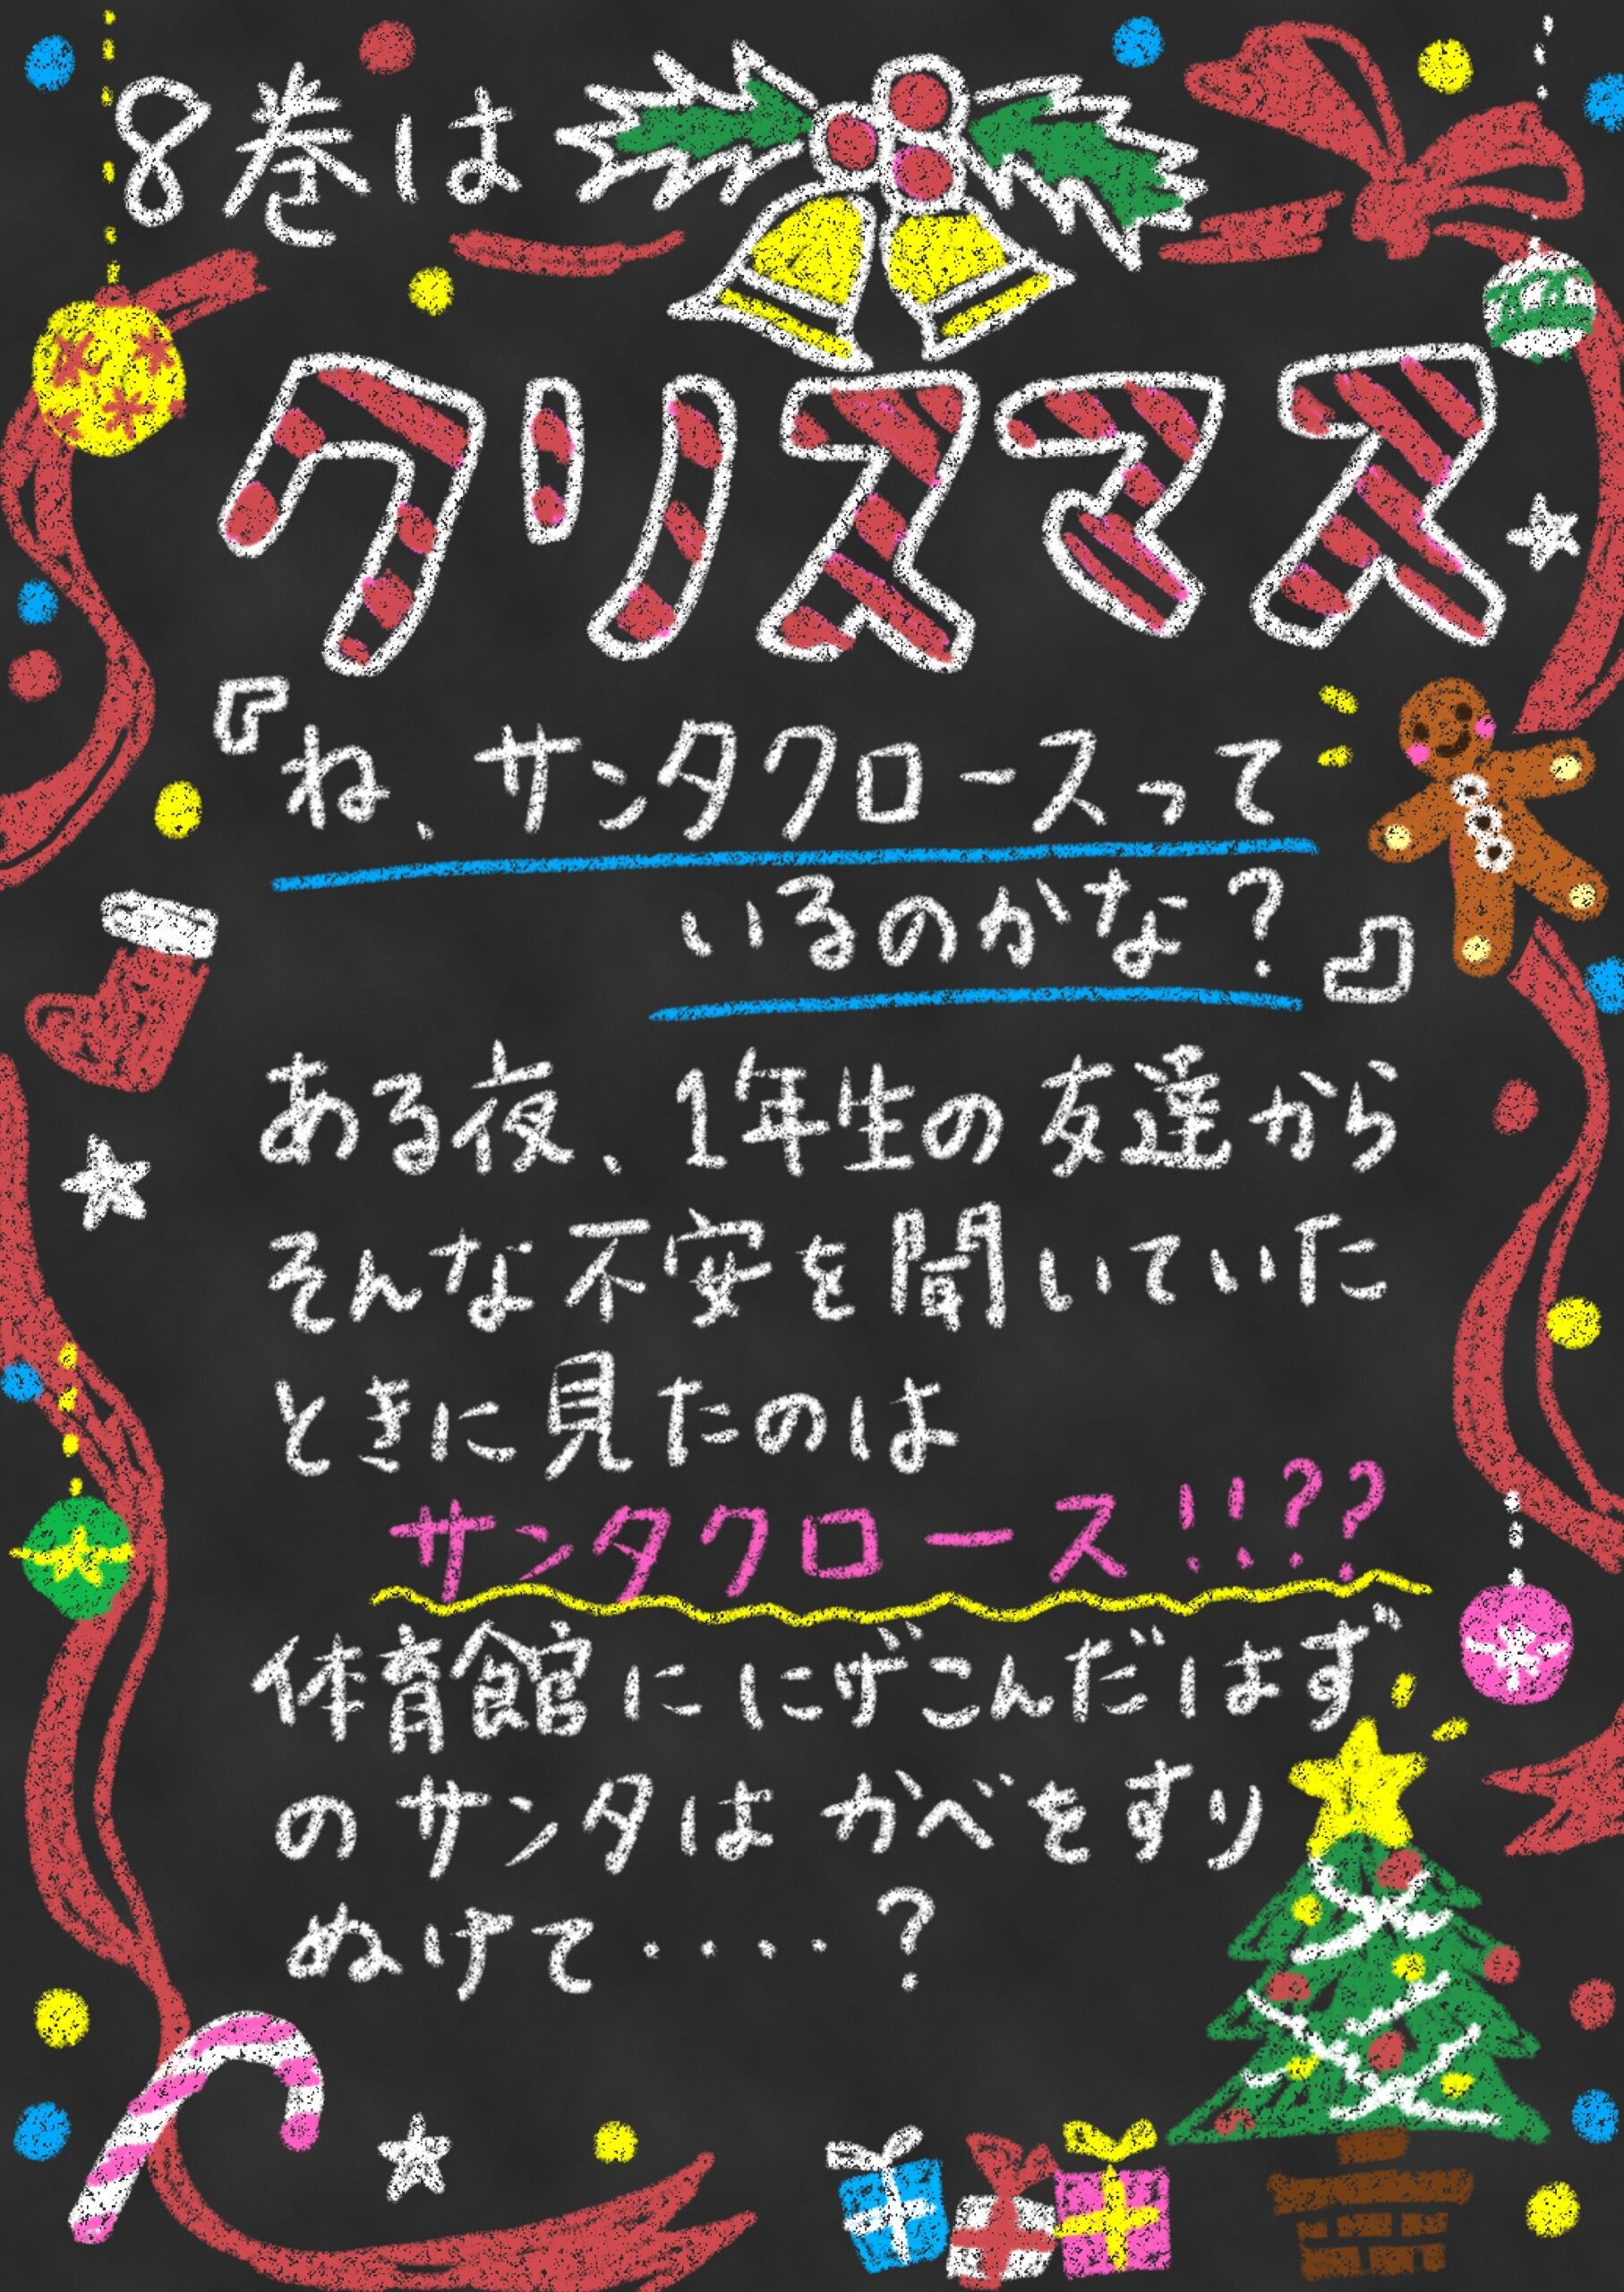 8巻は
クリスマス
『ね、サンタクロースって
いるのかな?』
ある夜、1年生の友達から
そんな不安を聞いていた
ときに見たのは
サンタクロース!!??
体育館ににげこんだはず
のサンタはかべをすり
ぬけて····?